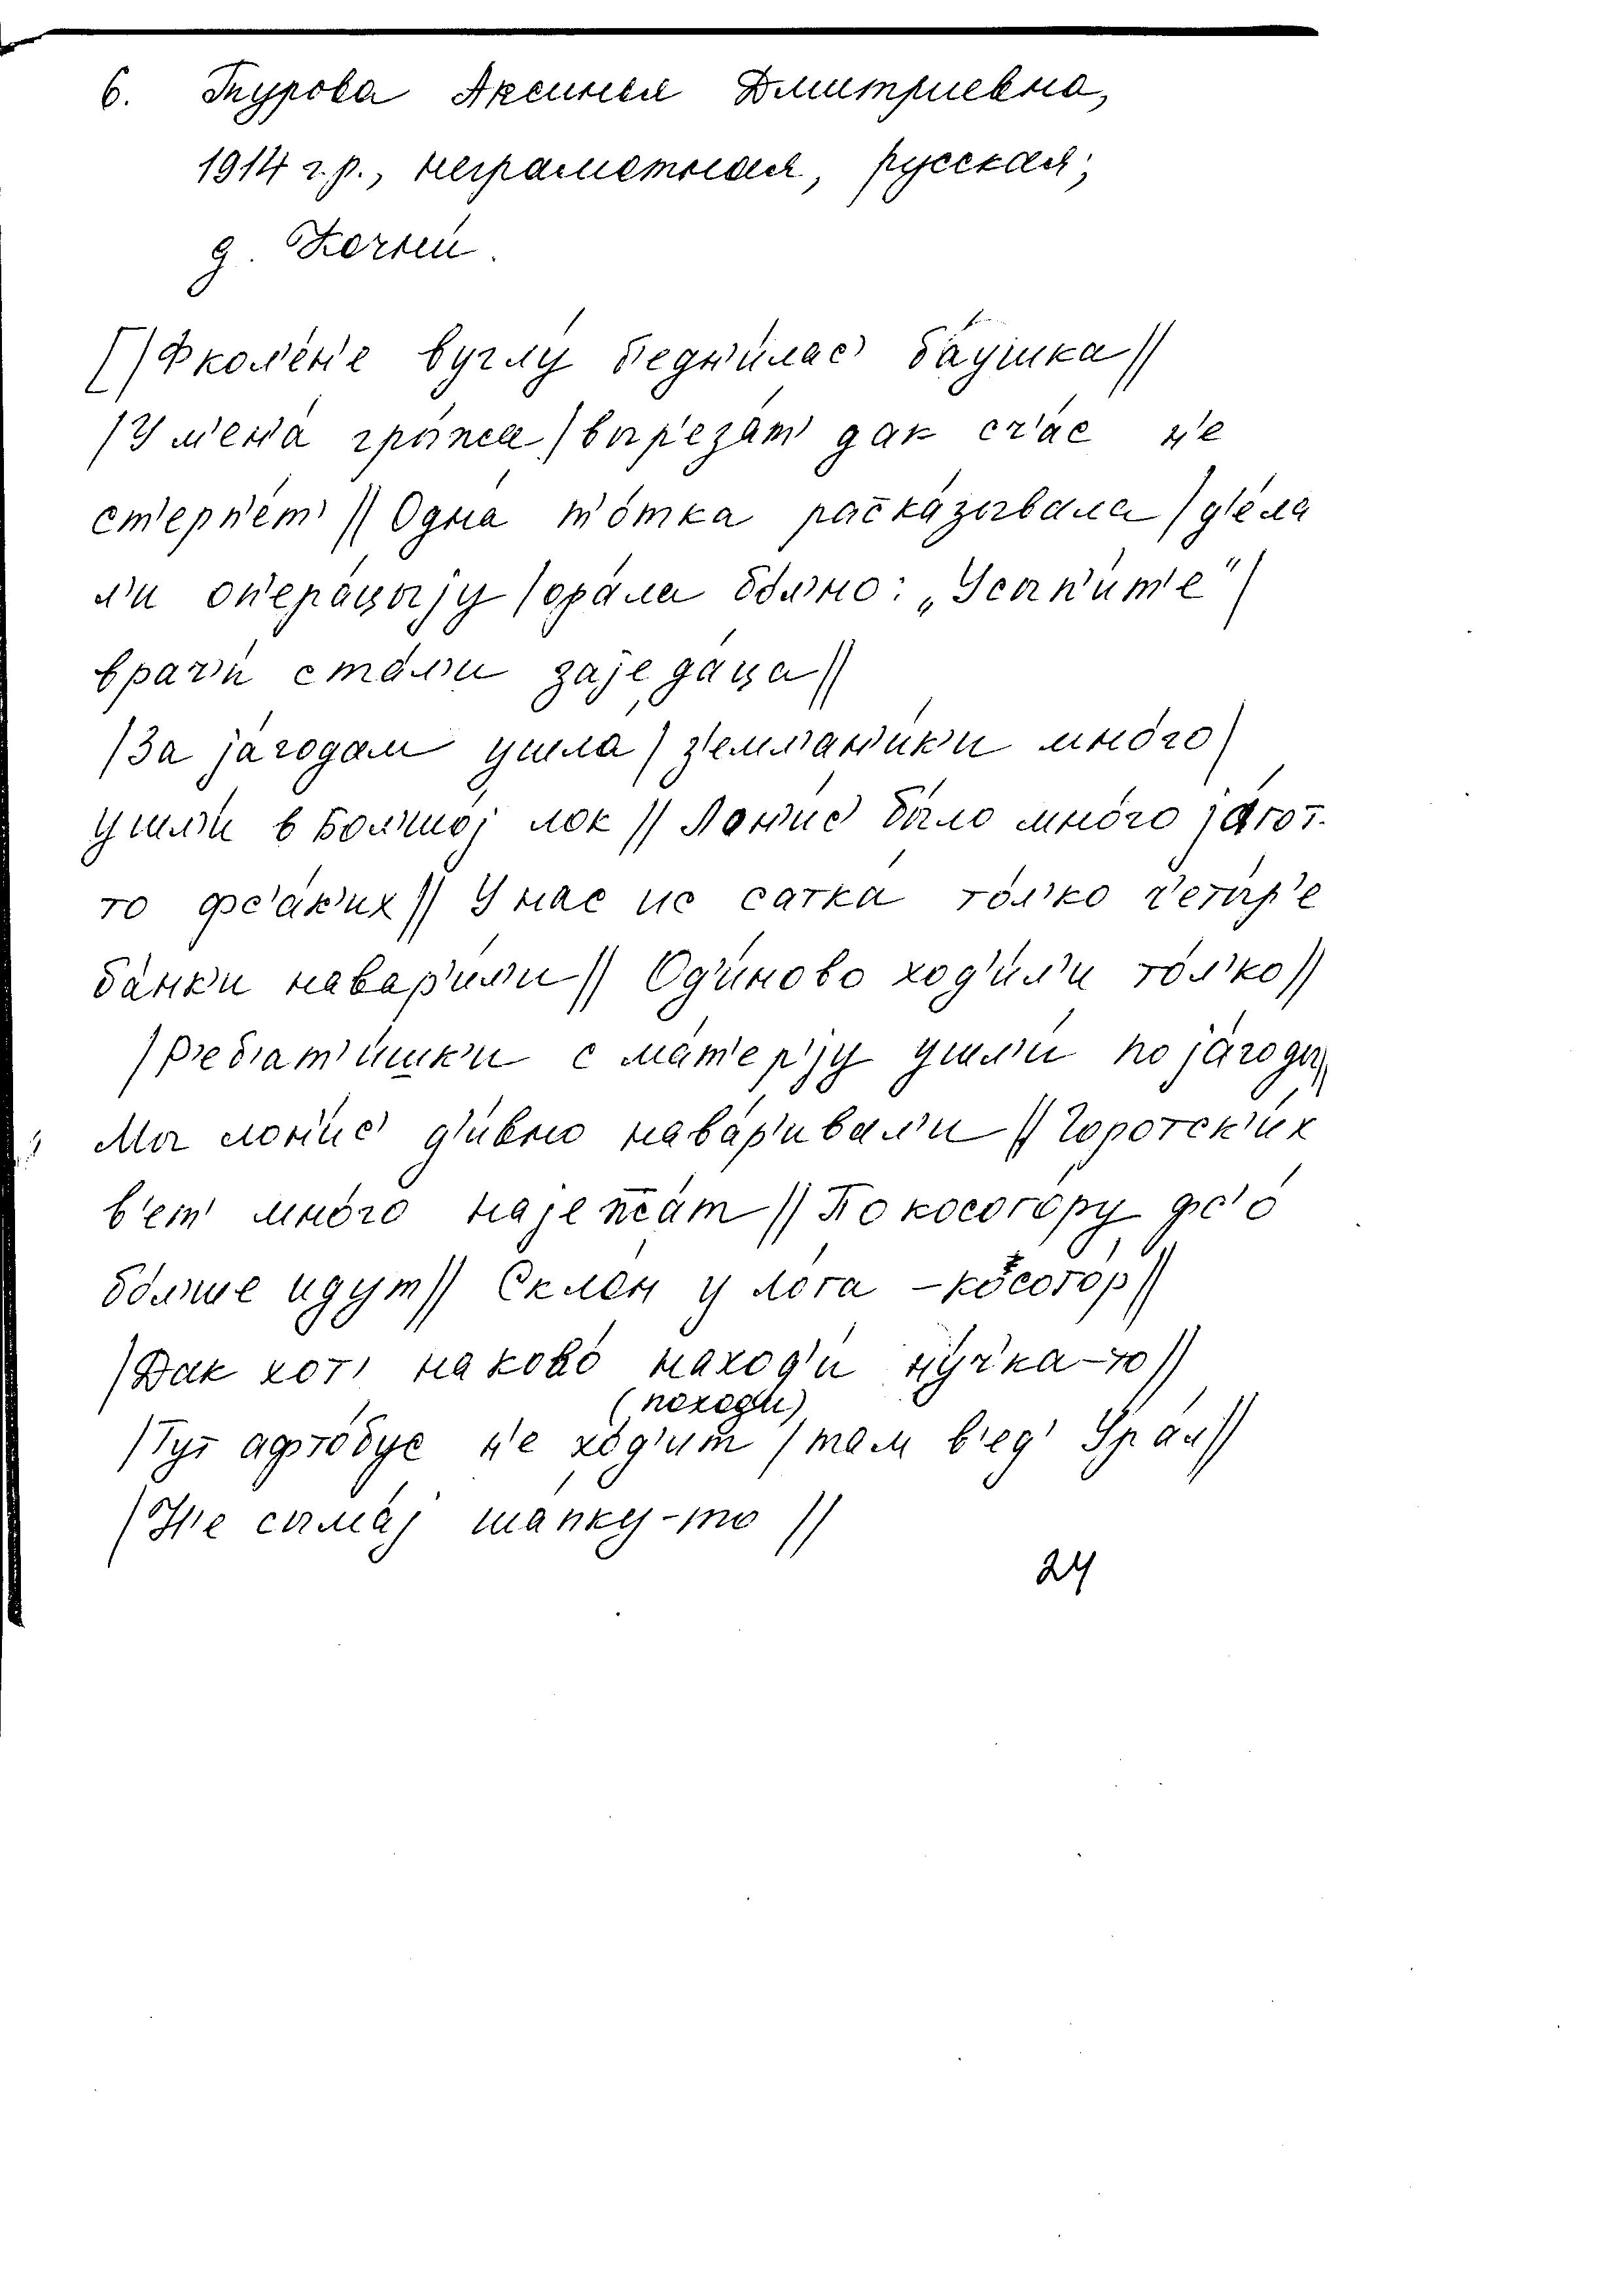 6. Турова Аксинья Дмитриевна,
1914 г.р., неграмотная, русская;
д. Кочни.
[/Фкол'е́н'е вуглу́ б'едн'и́лас' ба́ушка//
/У м'ен'а́ гры́жа/вы́р'езат' дак сч'ас н'е
ст'ерп'е́т'// Одна́ т'о́тка раска́зывала/д'е́ла
л'и оп'ера́цыjу/ора́ла бо́л'но: „Усып'и́т'е"/
врач'и́ ста́л'и заjеда́ца//
/За jа́годам ушла́/з'емл'ан'и́к'и мно́го/
ушл'и́ в Бол'шо́j лок// Лон'и́с' бы́ло мно́го jа́гот-
то фс'а́к'их// У нас ис сатка́ то́л'ко ч'еты́р'е
ба́нк'и навар'и́л'и// Од'и́ново ход'и́л'и то́л'ко//
/Р'еб'ат'и́шк'и с ма́т'ер'jу ушл'и́ по jа́годы/
Мы лон'и́с' д'и́вно нава́р'ивал'и// Горотск'и́х
в'ет' мно́го наjежа́т// По косого́ру фс'о
бо́л'ше иду́т// Скло́н у ло́га – косого́р//
/Дак хот' на ково́ наход'и́ ну́чка-то//
(поход'и)
/Тут афто́бус н'е хо́д'ит/там в'ед' Ура́л//
/Н'е сыма́j ша́пку-то//
24